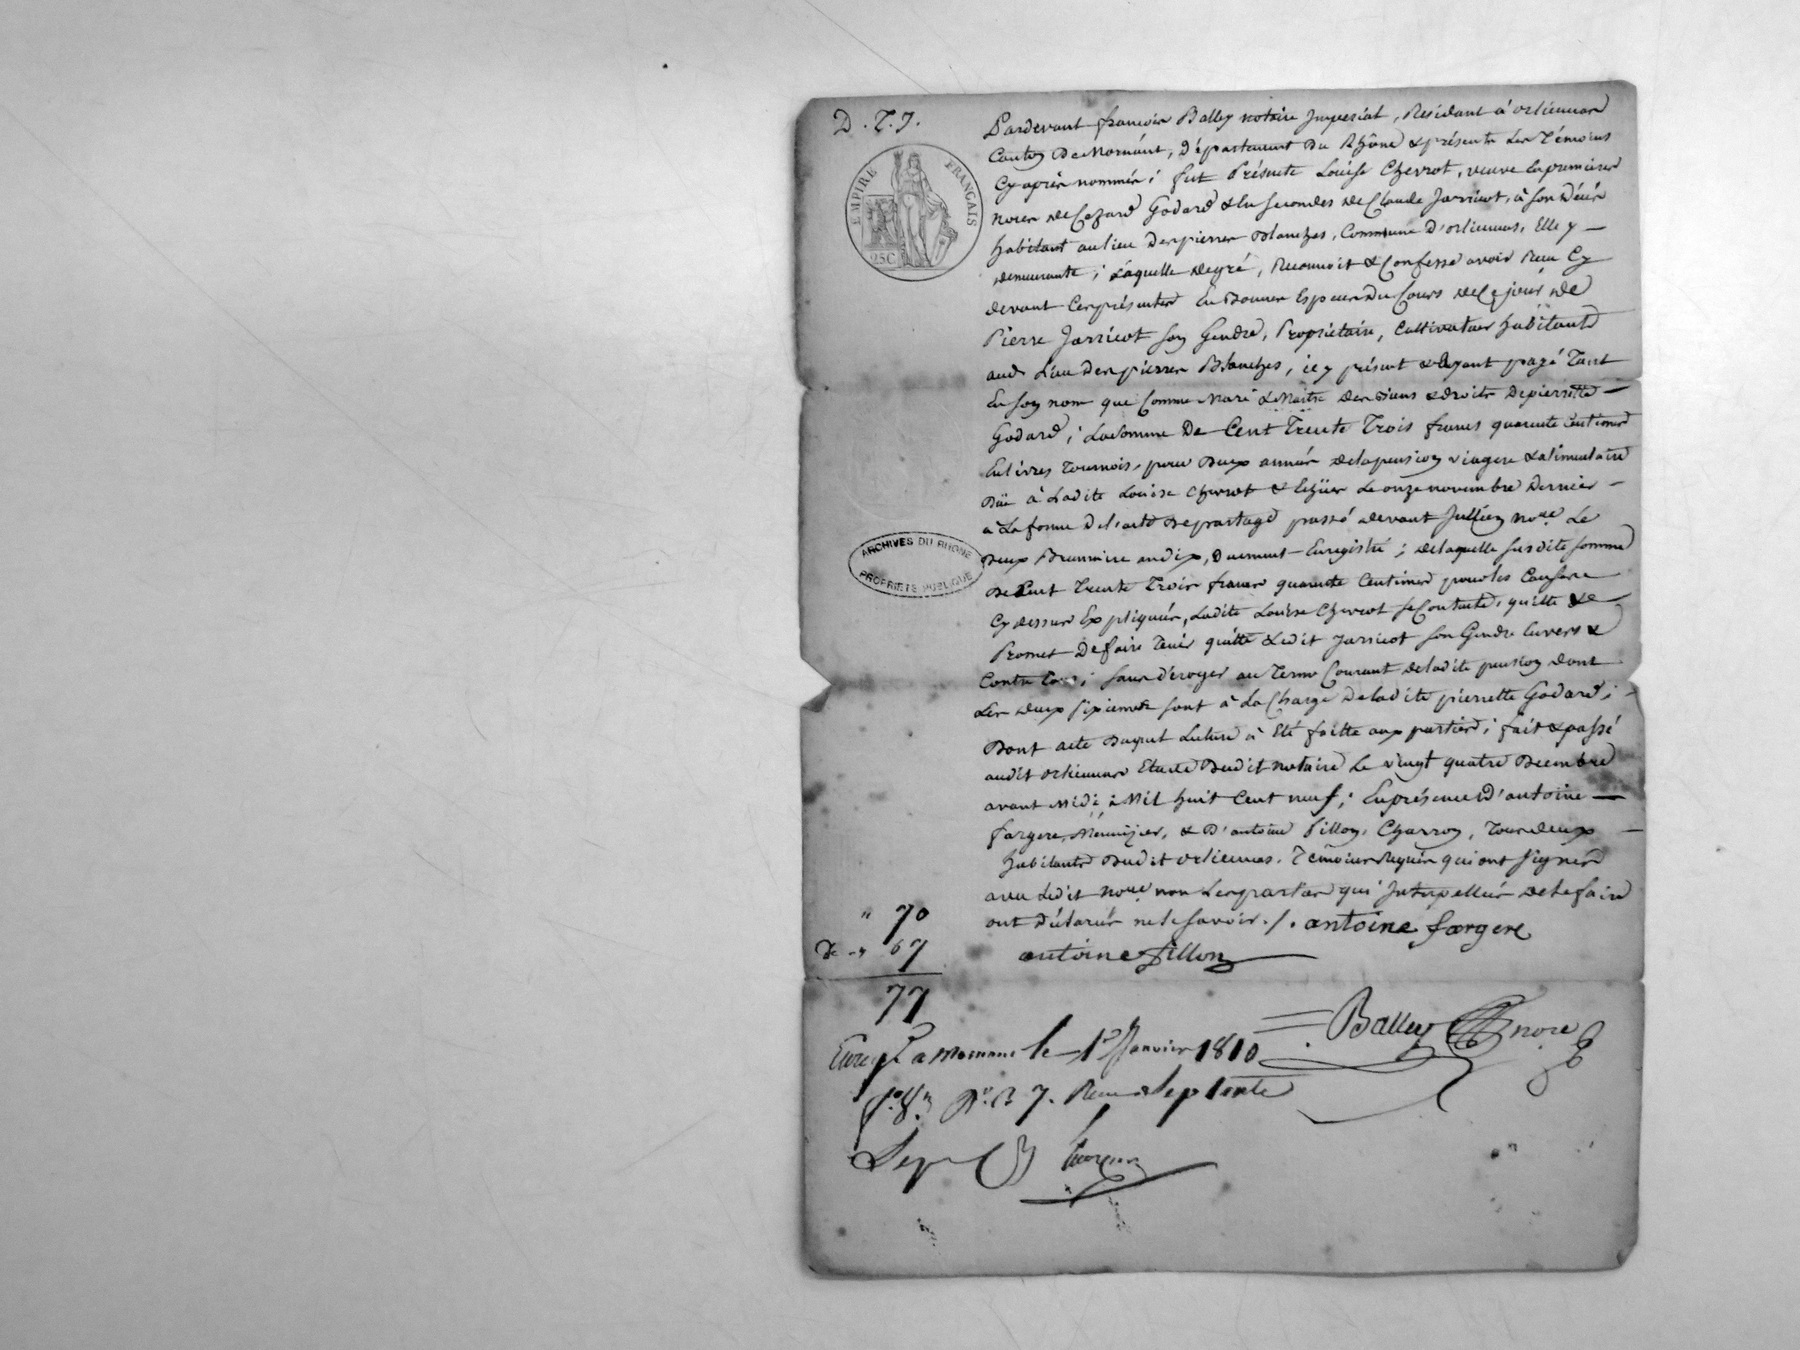 D. T. J.
EMPIRE FRANÇAIS
25C
Pardevant françois Balley notaire Imperial, Residant à orliennas
Canton De Mornant, Département Du Rhône & présents Les Témoins
Cy après nommés; fut Présente Louise Chevrot, veuve en premieres
noces de Cezard Godard & En secondes de Claude Jarricot, à son Décès
habitant au lieu Des pierres Blanches, Commune D'orliennas, Elle y —
demeurante; Laquelle de gré, Reconnoit & Confesse avoir Recu Cy
devant Ces présentes En Bonnes Especes Du Cours de Ce jour de
Pierre Jarricot son Gendre, Propriétaire, Cultivateur habitant
aud. Lieu Des pierres Blanches, icy présent & ayant payé Tant
En son nom que Comme Mari & Maitre des Biens & droits De pierrette —
Godard; La somme De Cent Trente Trois francs quarante Centimes
En livres Tournois, pour Deux années de la pension viagere & alimentaire
Düe à Ladite Louise Chevrot & Echüe Le onze novembre Dernier —
à La forme De l'acte De partage passé devant Jullien no.re Le
Deux Brumaire an dix, Duement Enregistré; de laquelle susdite somme
De Cent Trente Trois francs quarante Centimes pour les Causes
Cy dessus Expliquées, Ladite Louise Chevrot se Contente, quitte & —
Promet De faire Tenir quitte Ledit Jarricot son Gendre Envers &
Contre Tous; sans déroger au Terme Courant de ladite pension dont
Les deux sixiemes sont à La Charge De ladite pierrette Godard; —
Dont acte Duquel Lecture à Eté faitte aux parties; fait & passé
audit orliennas Etude Dudit notaire Le vingt quatre Decembre
avant Midi à Mil huit Cent neuf; En présence D'antoine —
fargere, Meunijer, & D'antoine Pillon, Charron, Tous deux —
habitants Dudit orliennas, Témoins Requis qui ont signés
avec Ledit no.re non Les parties qui Interpellées de le faire
ont Déclarées ne le savoir. /. antoine fargere
antoine Pillon
ARCHIVES DU RHONE
PROPRIETE PUBLIQUE
" 70
De " 67
77
Balley no.re
Enreg.é a Mornant le 1.er Janvier 1810
f.o 8 R.o C. 7. Recu Sept cente